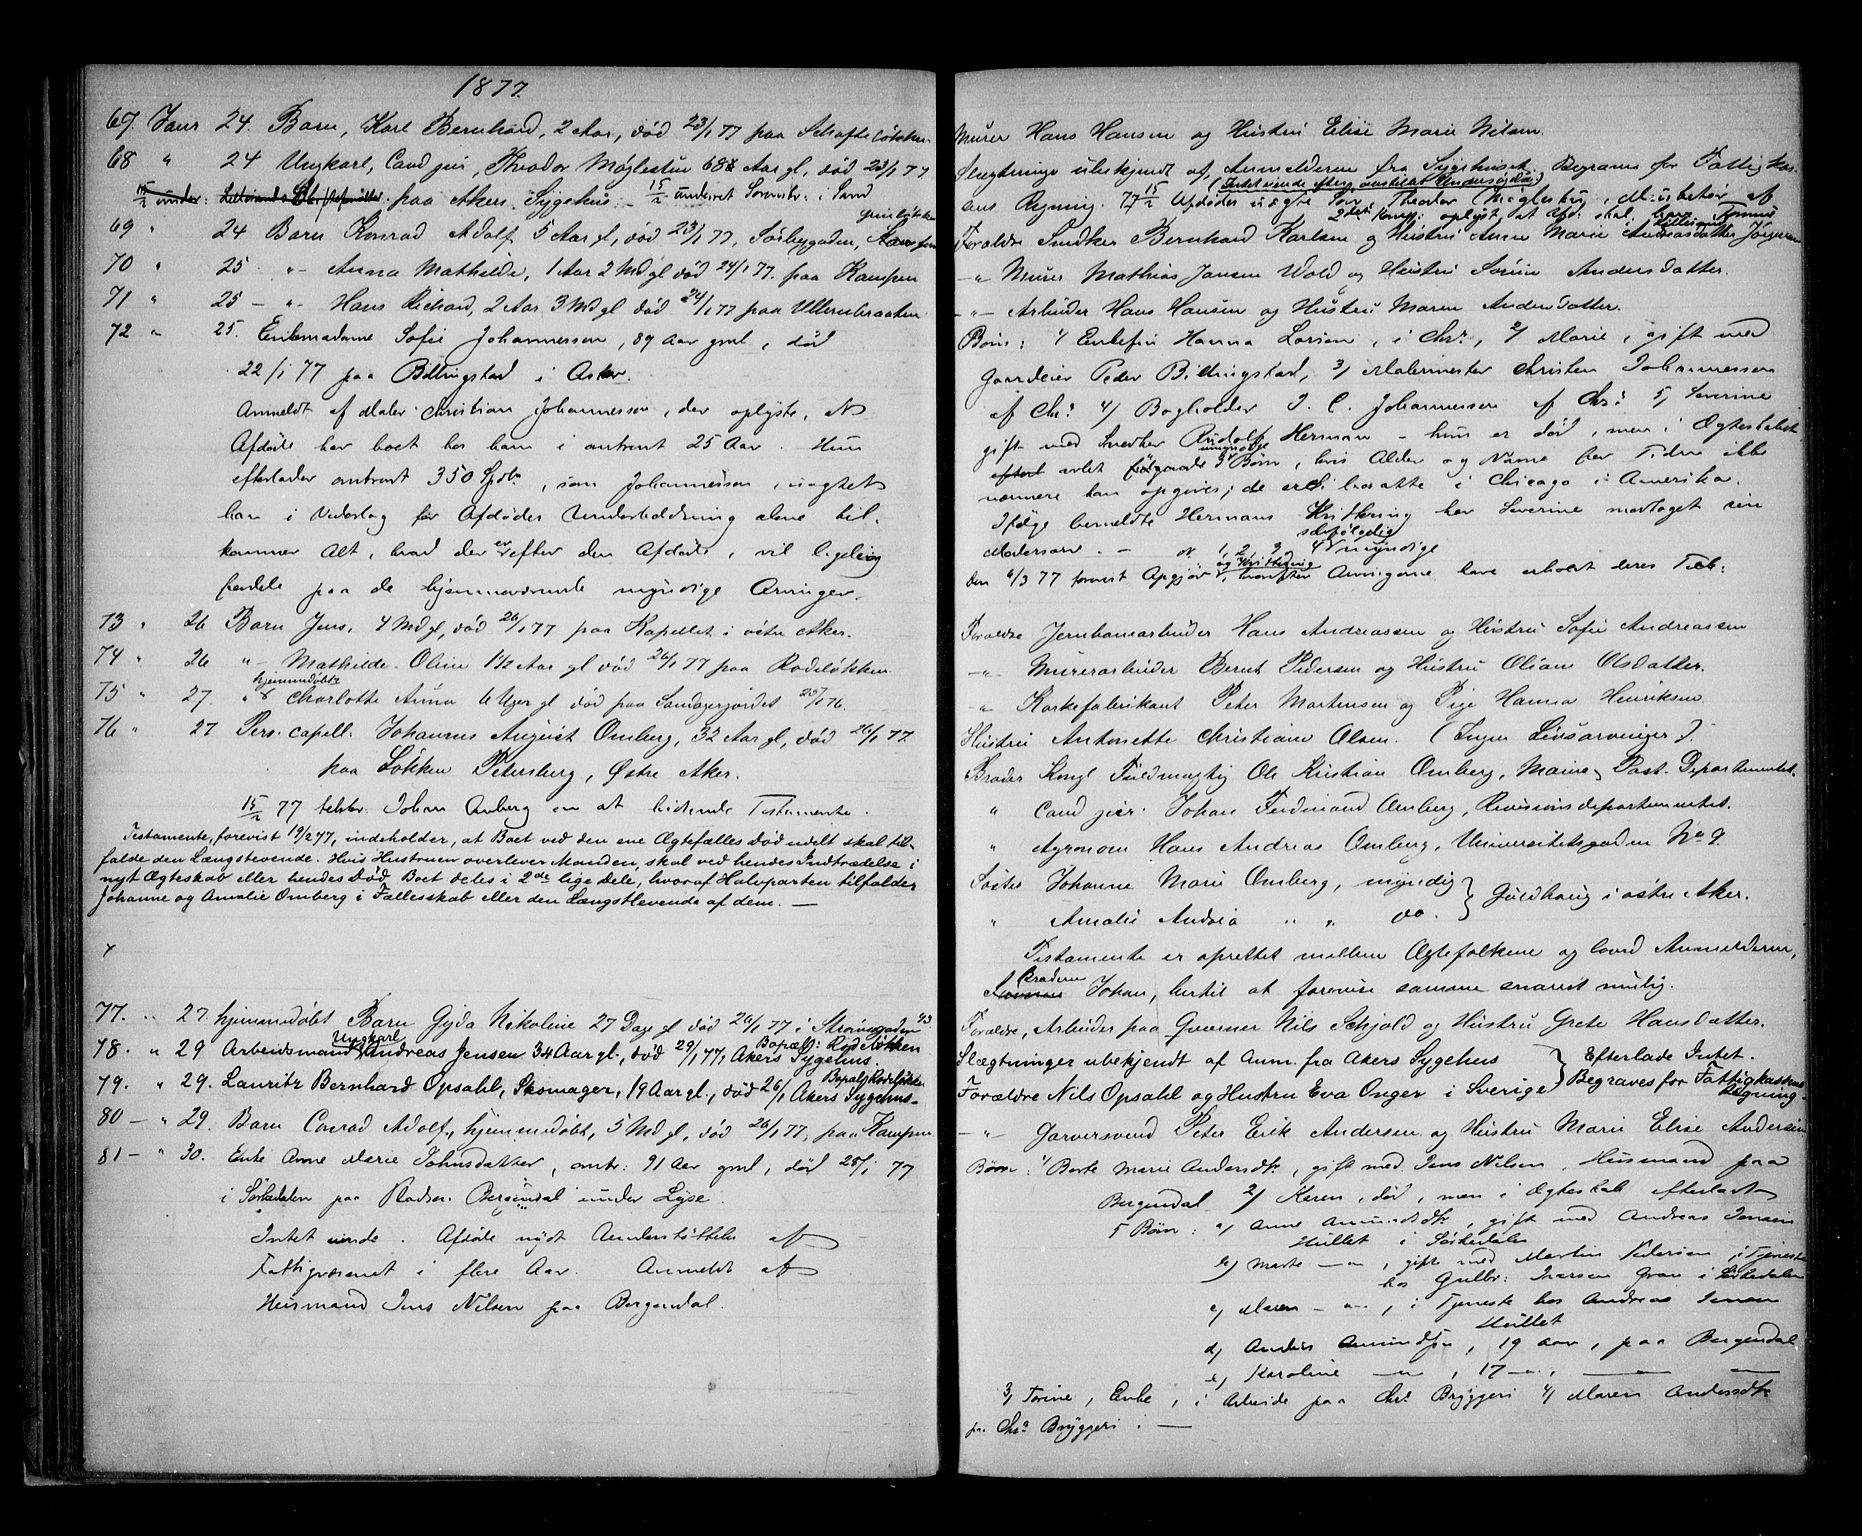 1877.
67. Janr 24. Barn, Karl Bernhard, 2 Aar, død 23/1 77 paa Schafteløkken
68 " 24 Ungkarl, Cand jur, Theodor Møglestue 68 Aar gl, død 23/1 77
paa Akers Sygehus. 15/2
69 " 24 Barn Konrad Adolf 5 Aar gl, død 23/1 77, Sørbygaden,
70 " 25 " Anna Mathilde, 1 Aar 2 Md gl død 24/1 77 paa Kampen
71 " 25 - " - Hans Richard, 2 Aar 3 Md gl død 24/1 77 paa Ullernbraaten
72 " 25. Enkemadame Sofie Johannessen, 89 Aar gml, død
22/1 77 paa Billingstad i Asker.
Anmeldt af Maler Christian Johannessen, der oplyste, at
Afdøde har boet hos ham i omtrent 25 Aar. Hun
efterlader omtrent 350 Spd, som Johannessen, uagtet
han i Vederlag for Afdødes Underholdning alene til-
kommer Alt, hvad der er efter den Afdøde, vil ligelig
fordele paa de hjemmeværende myndige Arvinger.
73 " 26 Barn Jens, 4 Md gl, død 26/1 77 paa Kapellet i østre Aker.
74 " 26 " - Mathilde Oline 1 1/2 Aar gl død 26/1 77 paa Rodeløkken
hjemmedøbt
75 " 27. " Charlotte Anna 6 Uger gl død paa Sandagerjordet 25/1 76.
76 " 27 Pers. capell. Johannes August Omberg, 32 Aar gl, død 26/1 77.
paa Løkken Petersberg, Østre Aker.
15/2 77 Johan Omberg en at Testamente.
Testamente, forevist 19/2 77, indeholder, at Boet ved den ene Ægtefælles Død udelt skal til-
falde den Længstlevende. Hvis Hustruen overlever Manden, skal ved hendes Indtrædelse i
nyt Ægteskab eller hendes Død Boet deles i 2de lige dele, hvoraf Halvparten tilfalder
Johanne og Amalie Omberg i Fællesskab eller den Længstlevende af dem. —
77. " 27 hjemmedøbt Barn Gyda Nikoline 27 Dage gl død 26/1 77 i Strømsgaden 43
Ungkarl Bopæl: Rodeløkken
78. " 29 Arbeidsmand Andreas Jensen 34 Aar gl., død 29/1 77, Akers Sygehus.
Bopæl Rodeløkken
79. " 29. Lauritz Bernhard Opsahl, Skomager, 19 Aar gl., død 26/1 Akers Sygehus.
80 - " 29. Barn Conrad Adolf, hjemmedøbt, 5 Md gl, død 26/1 77, paa Kampen
81 - " 30. Enke Anne Marie Johnsdatter, omtr: 91 Aar gml, død 28/1 77
i Sørkedalen paa Pladsen Bergendal under Lyse.
Intet eiende. Afdøde nydt Understøttelse af
Fattigvæsenet i flere Aar. Anmeldt af
Husmand Jens Nilsen paa Bergendal.
Murer Hans Hansen og Hustru Elise Marie Nilsen.
Slægtninge ubekjendt af Anmelderen fra Sygehuset. Begraves for Fattigkas
sens Regning.
Forældre Snedker Bernhard Karlsen og Hustru Anne Marie Andreasdatter
- " Murer Mathias Jansen Wold og Hustru Sørine Andersdatter.
- " - Arbeider Hans Hansen og Hustru Maren Andersdatter.
Børn: 1/ Enkefru Hanna Larsen, i Chr., 2/ Marie, gift med
Gaardeier Peder Billingstad, 3/ Malermester Christen Johannessen
af Chra 4/ Bogholder J. C. Johannessen af Chra 5/ Severine
gift med Snedker Rudolf Herman - hun er død, men i Ægteskabet
avlet umyndige Børn, hvis Alder og Navne for Tiden ikke
nærmere kan opgives; de ere bosatte i Chicago i Amerika.
Ifølge bemeldte Hermans Kvittering har Severine modtaget sin
Modersarv. - 1, 2, 3, 4 selvfølgelig myndige
den 6/3 77 forevist Apgjør og Kvittering, hvorefter Arvingerne have erholdt deres
Forældre Jernbanearbeider Hans Andreassen og Hustru Sofie Andreassen
- " - Murerarbeider Bernt Pedersen og Hustru Oliane Olsdatter.
- " Korkefabrikant Peter Mortensen og Pige Hanna Henriksen
Hustru Antonette Christiane Olsen. (Ingen Livsarvinger).
Broder Kongl Fuldmægtig Ole Kristian Omberg, Marine & Post-Departementet.
" Cand jur. Johan Ferdinand Omberg, Revisionsdepartementet.
" Agronom Hans Andreas Omberg, Universitetsgaden No 9.
Søster Johanne Marie Omberg, myndig } Guldhaug i østre Aker.
" Amalie Andrea " " do.
Testamente er oprettet mellem Ægtefolkene og loved Anmelderen,
Broderen Johan, hertil at forevise samme snarest mulig.
Forældre, Arbeider paa Gværner Nils Schjold og Hustru Grete Hansdatter.
Slægtninger ubekjendt af Anm. fra Akers Sygehus } Efterlade Intet.
Forældre Nils Opsahl og Hustru Eva Onger i Sverige } Begraves for Fattigkassens Regning.
- " - Garversvend Peter Erik Andersen og Hustru Marie Elise Andersen
Børn: 1/ Berte Marie Andersdt., gift med Jens Nilsen, Husmand paa
Bergendal 2/ Karen, død, men i Ægteskab efterladt
5 Børn: a/ Anne Amundsdt, gift med Andreas Jensen
Hullet i Sørkedalen
b/ Marte - " -, gift med Martin Pedersen i Tjeneste
hos Gulbr: Ivarsen Gran i Sørkedalen
c/ Maren - " -, i Tjeneste hos Andreas Jensen
Hullet
d/ Anders Amundsen, 19 Aar, paa Bergendal
e/ Karoline - " -, 17 - " -
3/ Torine, Enke, i Arbeide paa Chr. Bryggeri 4/ Maren Andersdt
paa Chra Bryggeri : —